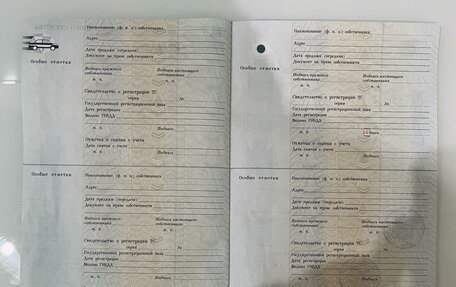 Особые отметки
Наименование (ф. и. о.) собственника
Адрес
Дата продажи (передачи)
Документ на право собственности
Подпись прежнего собственника
Подпись настоящего собственника
м. п.
м. п.
Свидетельство о регистрации ТС
серия №
Государственный регистрационный знак
Дата регистрации
Выдано ГИБДД
м. п.
Подпись
Отметка о снятии с учета
Дата снятия с учета
м. п.
Подпись
Особые отметки
Наименование (ф. и. о.) собственника
Адрес
Дата продажи (передачи)
Документ на право собственности
Подпись прежнего собственника
Подпись настоящего собственника
м. п.
м. п.
Свидетельство о регистрации ТС
серия №
Государственный регистрационный знак
Дата регистрации
Выдано ГИБДД
м. п.
Подпись
Особые отметки
Наименование (ф. и. о.) собственника
Адрес
Дата продажи (передачи)
Документ на право собственности
Подпись прежнего собственника
Подпись настоящего собственника
м. п.
м. п.
Свидетельство о регистрации ТС
серия №
Государственный регистрационный знак
Дата регистрации
Выдано ГИБДД
м. п.
Подпись
Отметка о снятии с учета
Дата снятия с учета
м. п.
Подпись
Особые отметки
Наименование (ф. и. о.) собственника
Адрес
Дата продажи (передачи)
Документ на право собственности
Подпись прежнего собственника
Подпись настоящего собственника
м. п.
м. п.
Свидетельство о регистрации ТС
серия №
Государственный регистрационный знак
Дата регистрации
Выдано ГИБДД
м. п.
Подпись